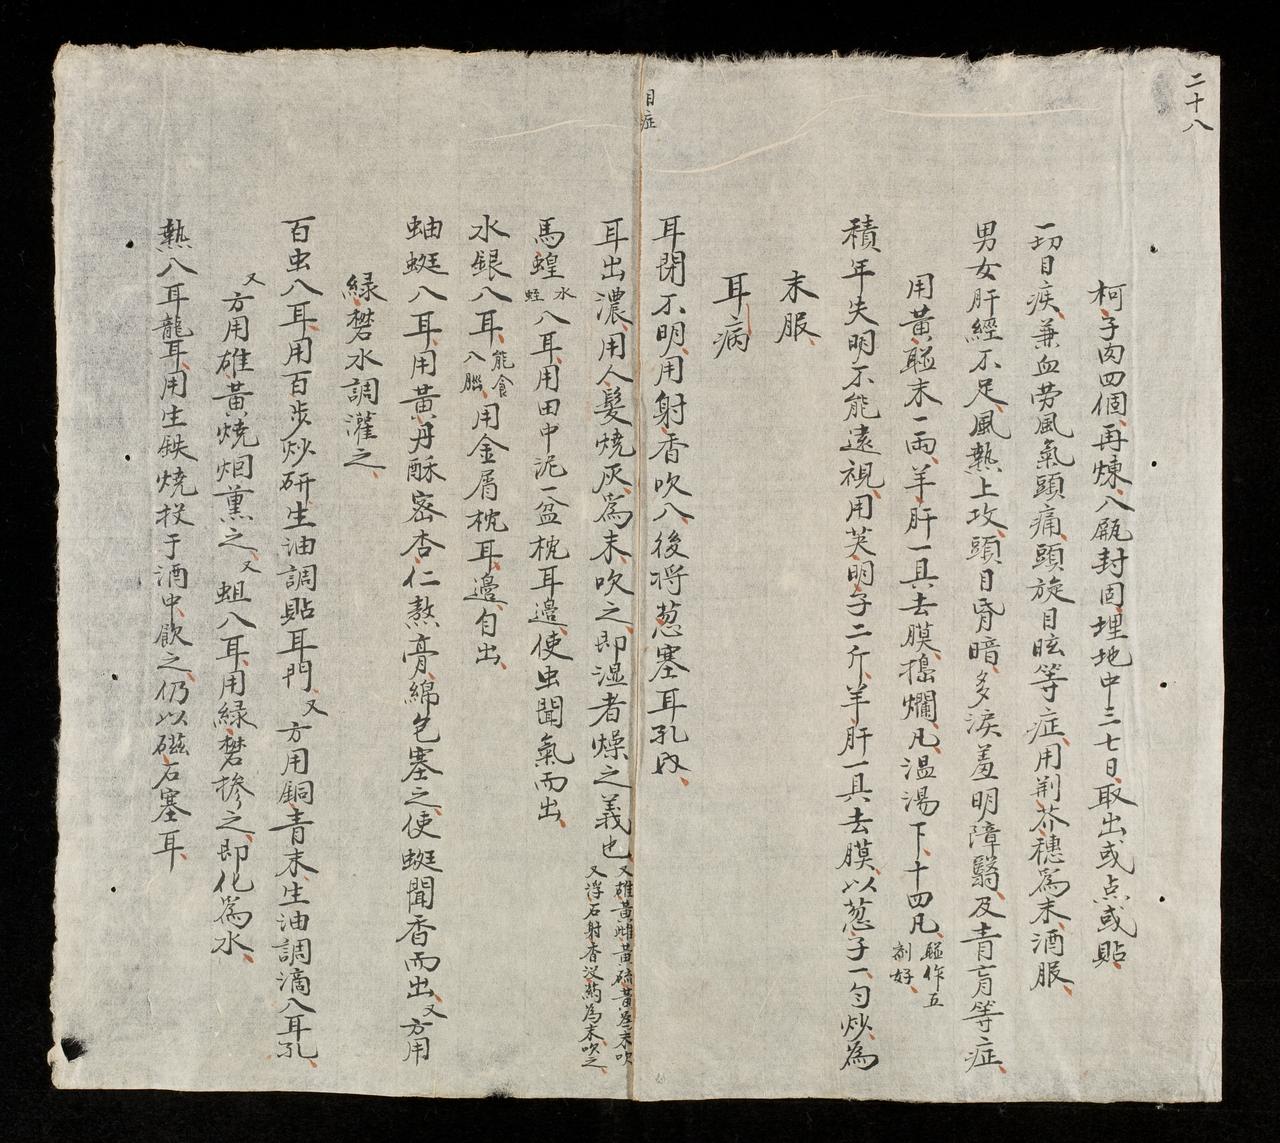 二十八
柯子肉四個、再煉、入瓶封固、埋地中三七日、取出或点或貼、
一切目疾、兼血劳風氣頭痛、頭旋目眩等症、用荆芥穗為末、酒服、
男女肝經不足、風熱上攻、頭目昏暗、多淚羞明、障翳、及青盲等症、
用黃連末一兩、羊肝一具去膜、搗爛、凡温湯下、十四凡、連作五
剤好、
積年失明不能遠視、用英明子二斤、羊肝一具去膜、以葱子一勺炒為
末服、
耳病
耳閉不明、用射香吹入、後将葱塞耳孔内、
目症
耳出濃、用人髮燒灰為末、吹之、即湿者燥之義也、又雄黃雌黃硫黃為末吹
又浮石射香没药為末吹之
馬蝗水
蛭入耳、用田中泥一盆枕耳邉、使虫聞氣而出、
水銀入耳、能食
入腦、用金屑枕耳邉、自出、
蚰蜒入耳、用黃丹酥密杏仁熬膏、綿包塞之、使蜒聞香而出、又方用
緑礬水調灌之、
百虫入耳、用百步炒研、生油調貼耳門、又方用銅青末、生油調滴入耳孔、
又方用雄黃燒烟薰之、又蛆入耳、用緑礬摻之、即化為水、
熱入耳聾耳、用生鉄燒投于酒中、飲之、仍以磁石塞耳、